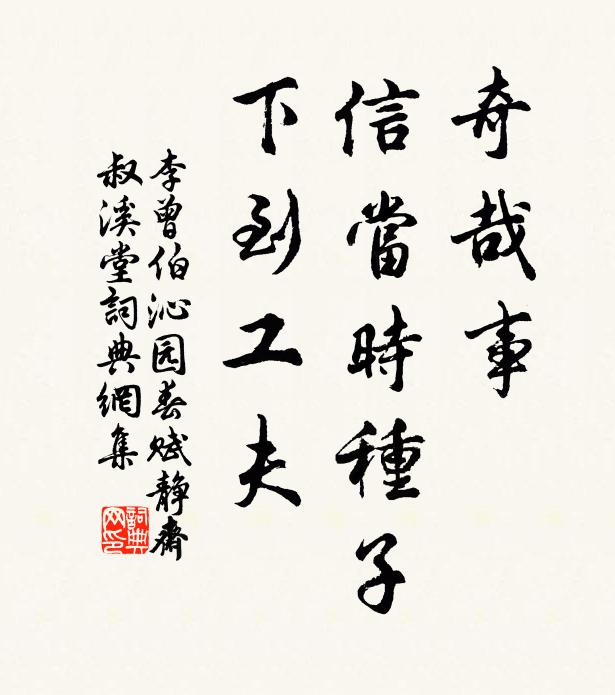 奇哉事
信當時種子
下到工夫
李曾伯沁园春赋静齋
叔溪堂詞典網集
詞典网印